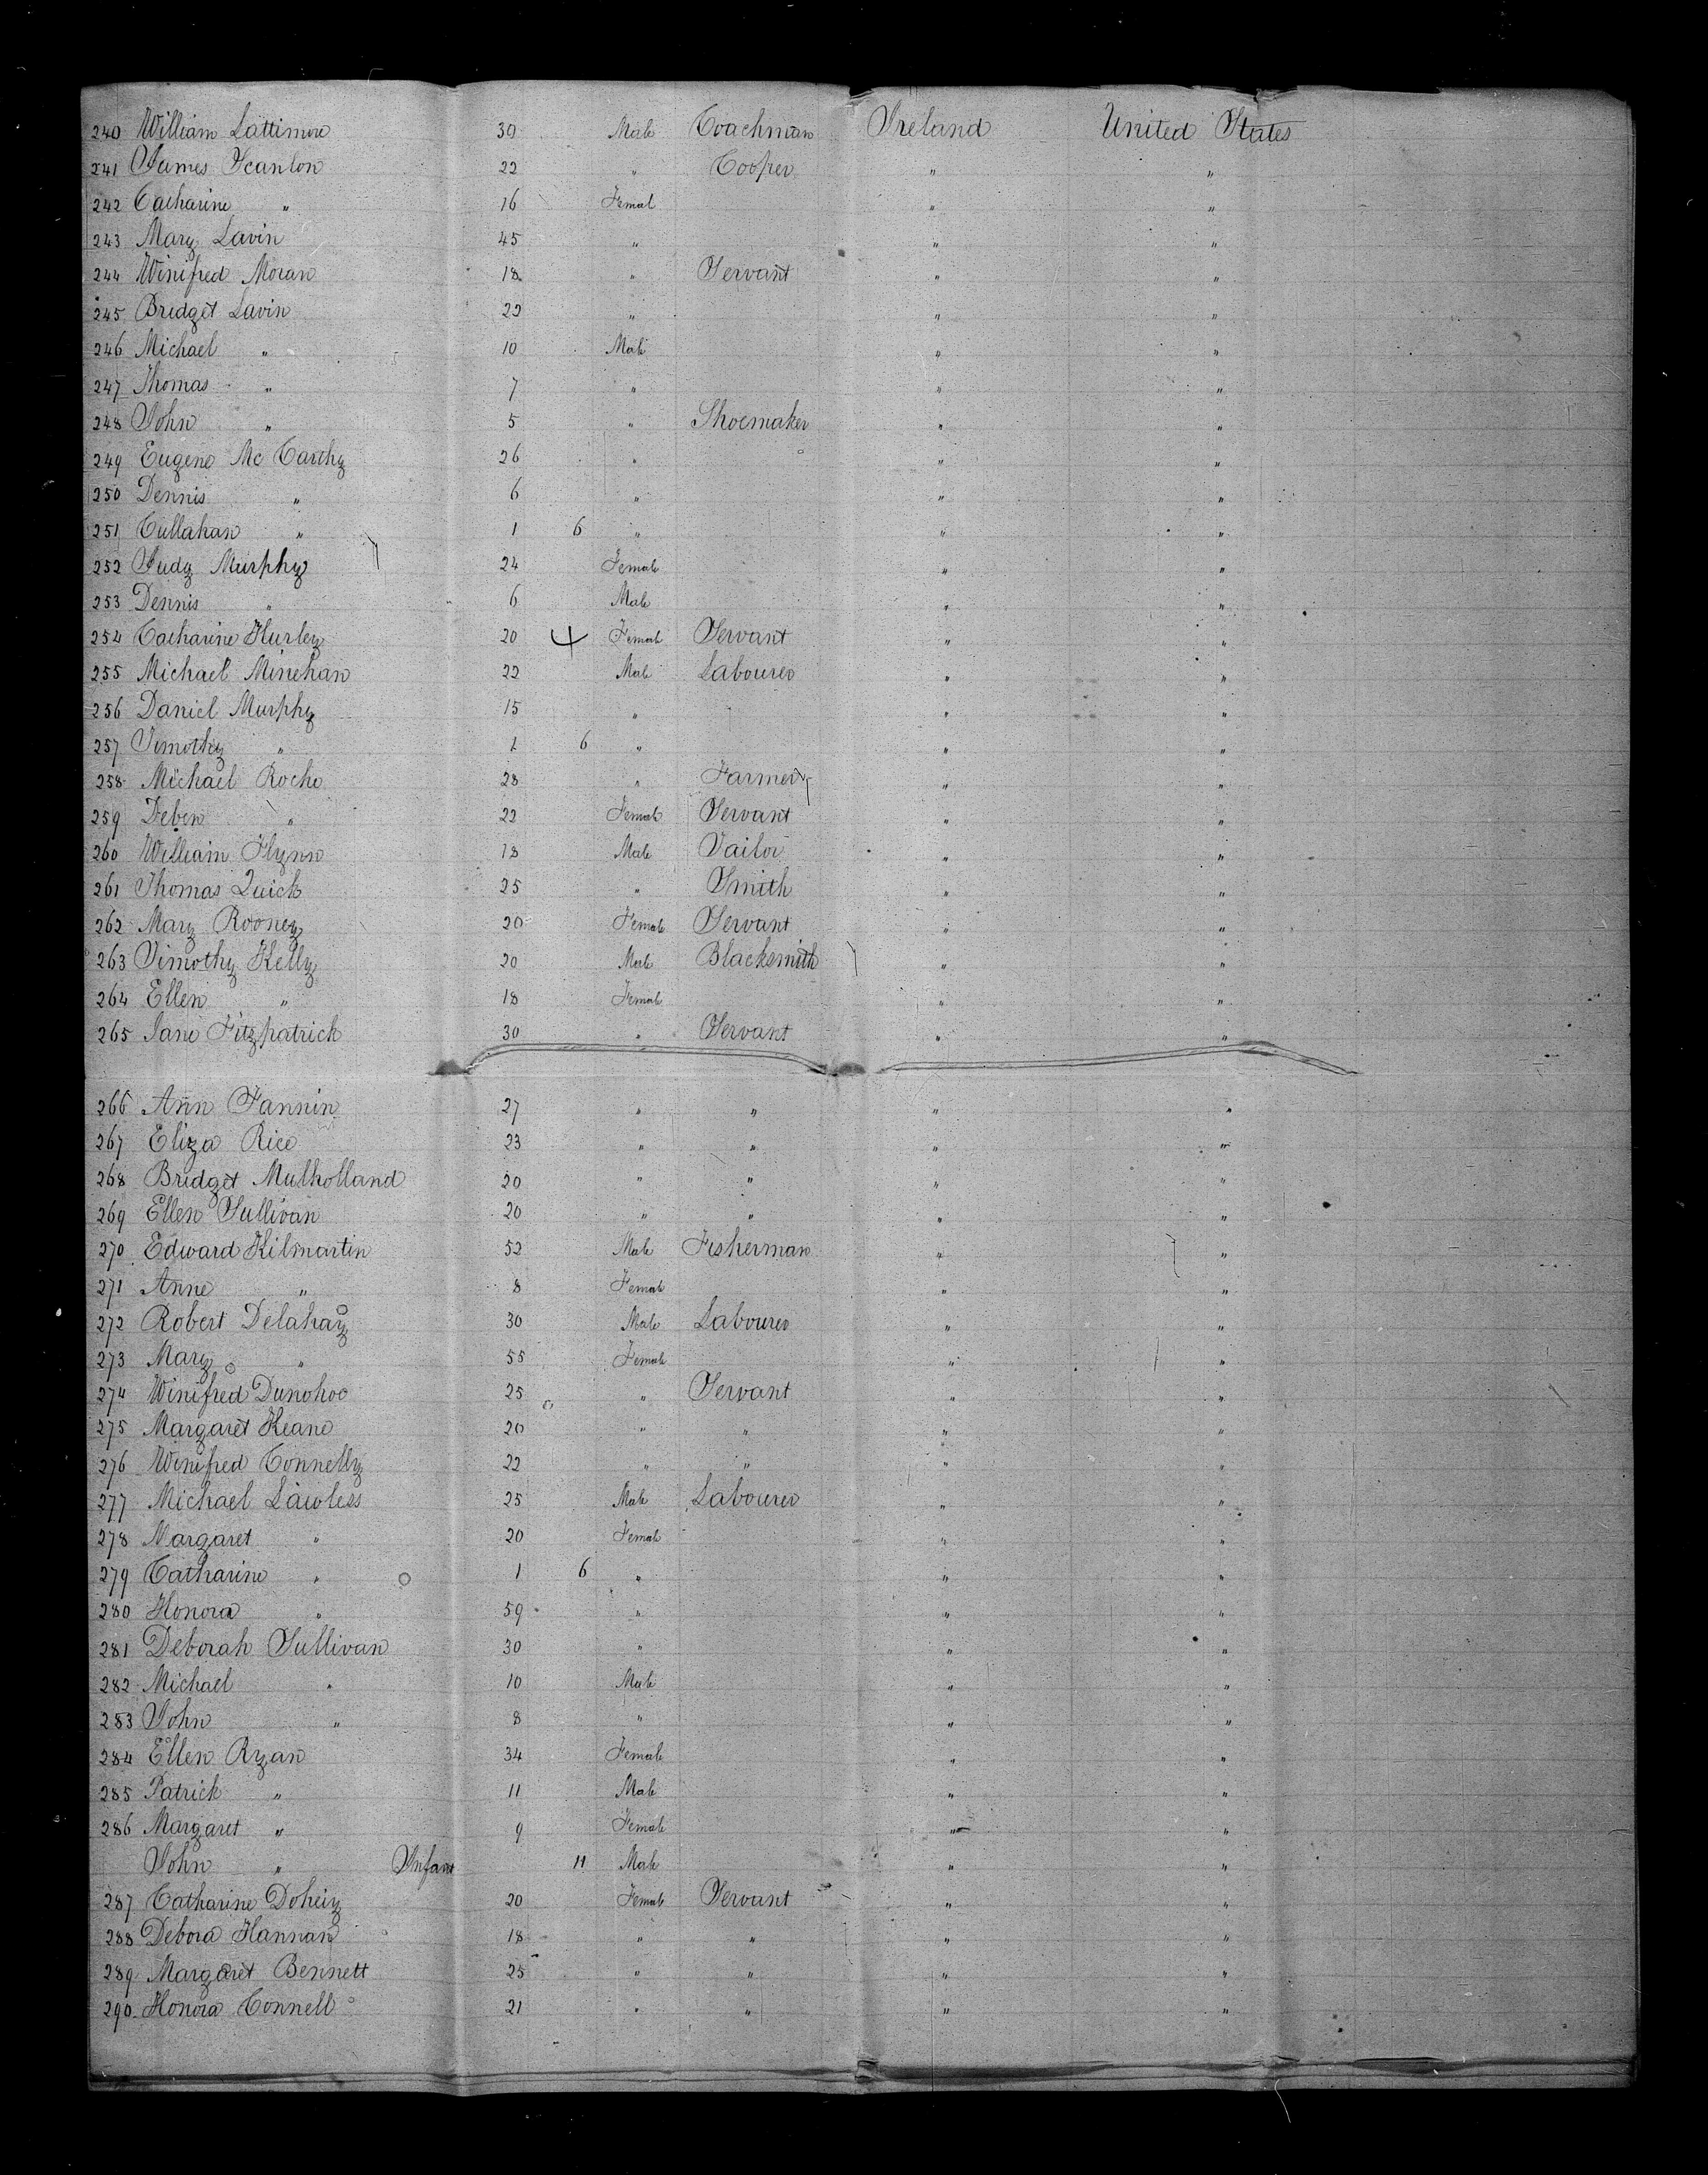 240 William Lattimore 30 Male Coachman Ireland United States
241 James Scanlon 22 " Cooper " "
242 Catharine " 16 Femal " "
243 Mary Lavin 45 " " "
244 Winifred Moran 18 " Servant " "
245 Bridget Lavin 22 " " "
246 Michael " 10 Male " "
247 Thomas " 7 " " "
248 John " 5 " Shoemaker " "
249 Eugene Mc Carthy 26 " " "
250 Dennis " 6 " " "
251 Cullahan " 1 6 " " "
252 Judy Murphy 24 Female " "
253 Dennis " 6 Male " "
254 Catharine Hurley 20 Female Servant " "
255 Michael Minehan 22 Male Labourer " "
256 Daniel Murphy 15 " " "
257 Timothy " 1 6 " " "
258 Michael Roche 28 " Farmer " "
259 Deben " 22 Female Servant " "
260 William Flynn 18 Male Tailor " "
261 Thomas Quick 25 " Smith " "
262 Mary Rooney 20 Female Servant " "
263 Timothy Kelly 20 Male Blacksmith " "
264 Ellen " 18 Female " "
265 Jane Fitzpatrick 30 " Servant " "
266 Ann Fannin 27 " " " "
267 Eliza Rice 23 " " " "
268 Bridget Mulholland 20 " " " "
269 Ellen Sullivan 20 " " " "
270 Edward Kilmartin 52 Male Fisherman " "
271 Anne " 8 Female " "
272 Robert Delahay 30 Male Labourer " "
273 Mary " 55 Female " "
274 Winifred Dunohoe 25 " Servant " "
275 Margaret Keane 20 " " " "
276 Winifred Connelly 22 " " " "
277 Michael Lawless 25 Male Labourer " "
278 Margaret " 20 Female " "
279 Catharine " 1 6 " " "
280 Honora " 59 " " "
281 Deborah Sullivan 30 " " "
282 Michael " 10 Male " "
283 John " 8 " " "
284 Ellen Ryan 34 Female " "
285 Patrick " 11 Male " "
286 Margaret " 9 Female " "
John " Infant 11 Male " "
287 Catharine Doheiy 20 Female Servant " "
288 Debora Hannan 18 " " " "
289 Margaret Bennett 25 " " " "
290 Honora Connell 21 " " " "